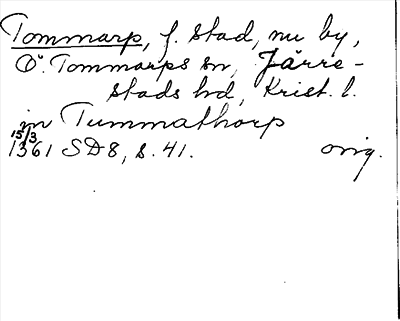 Tommarp, f. stad, nu by,
Ö. Tommarps sn, Järre-
stads hd, Krist. l.
in Tummathorp
15/3
1361 SD8, s. 41. orig.